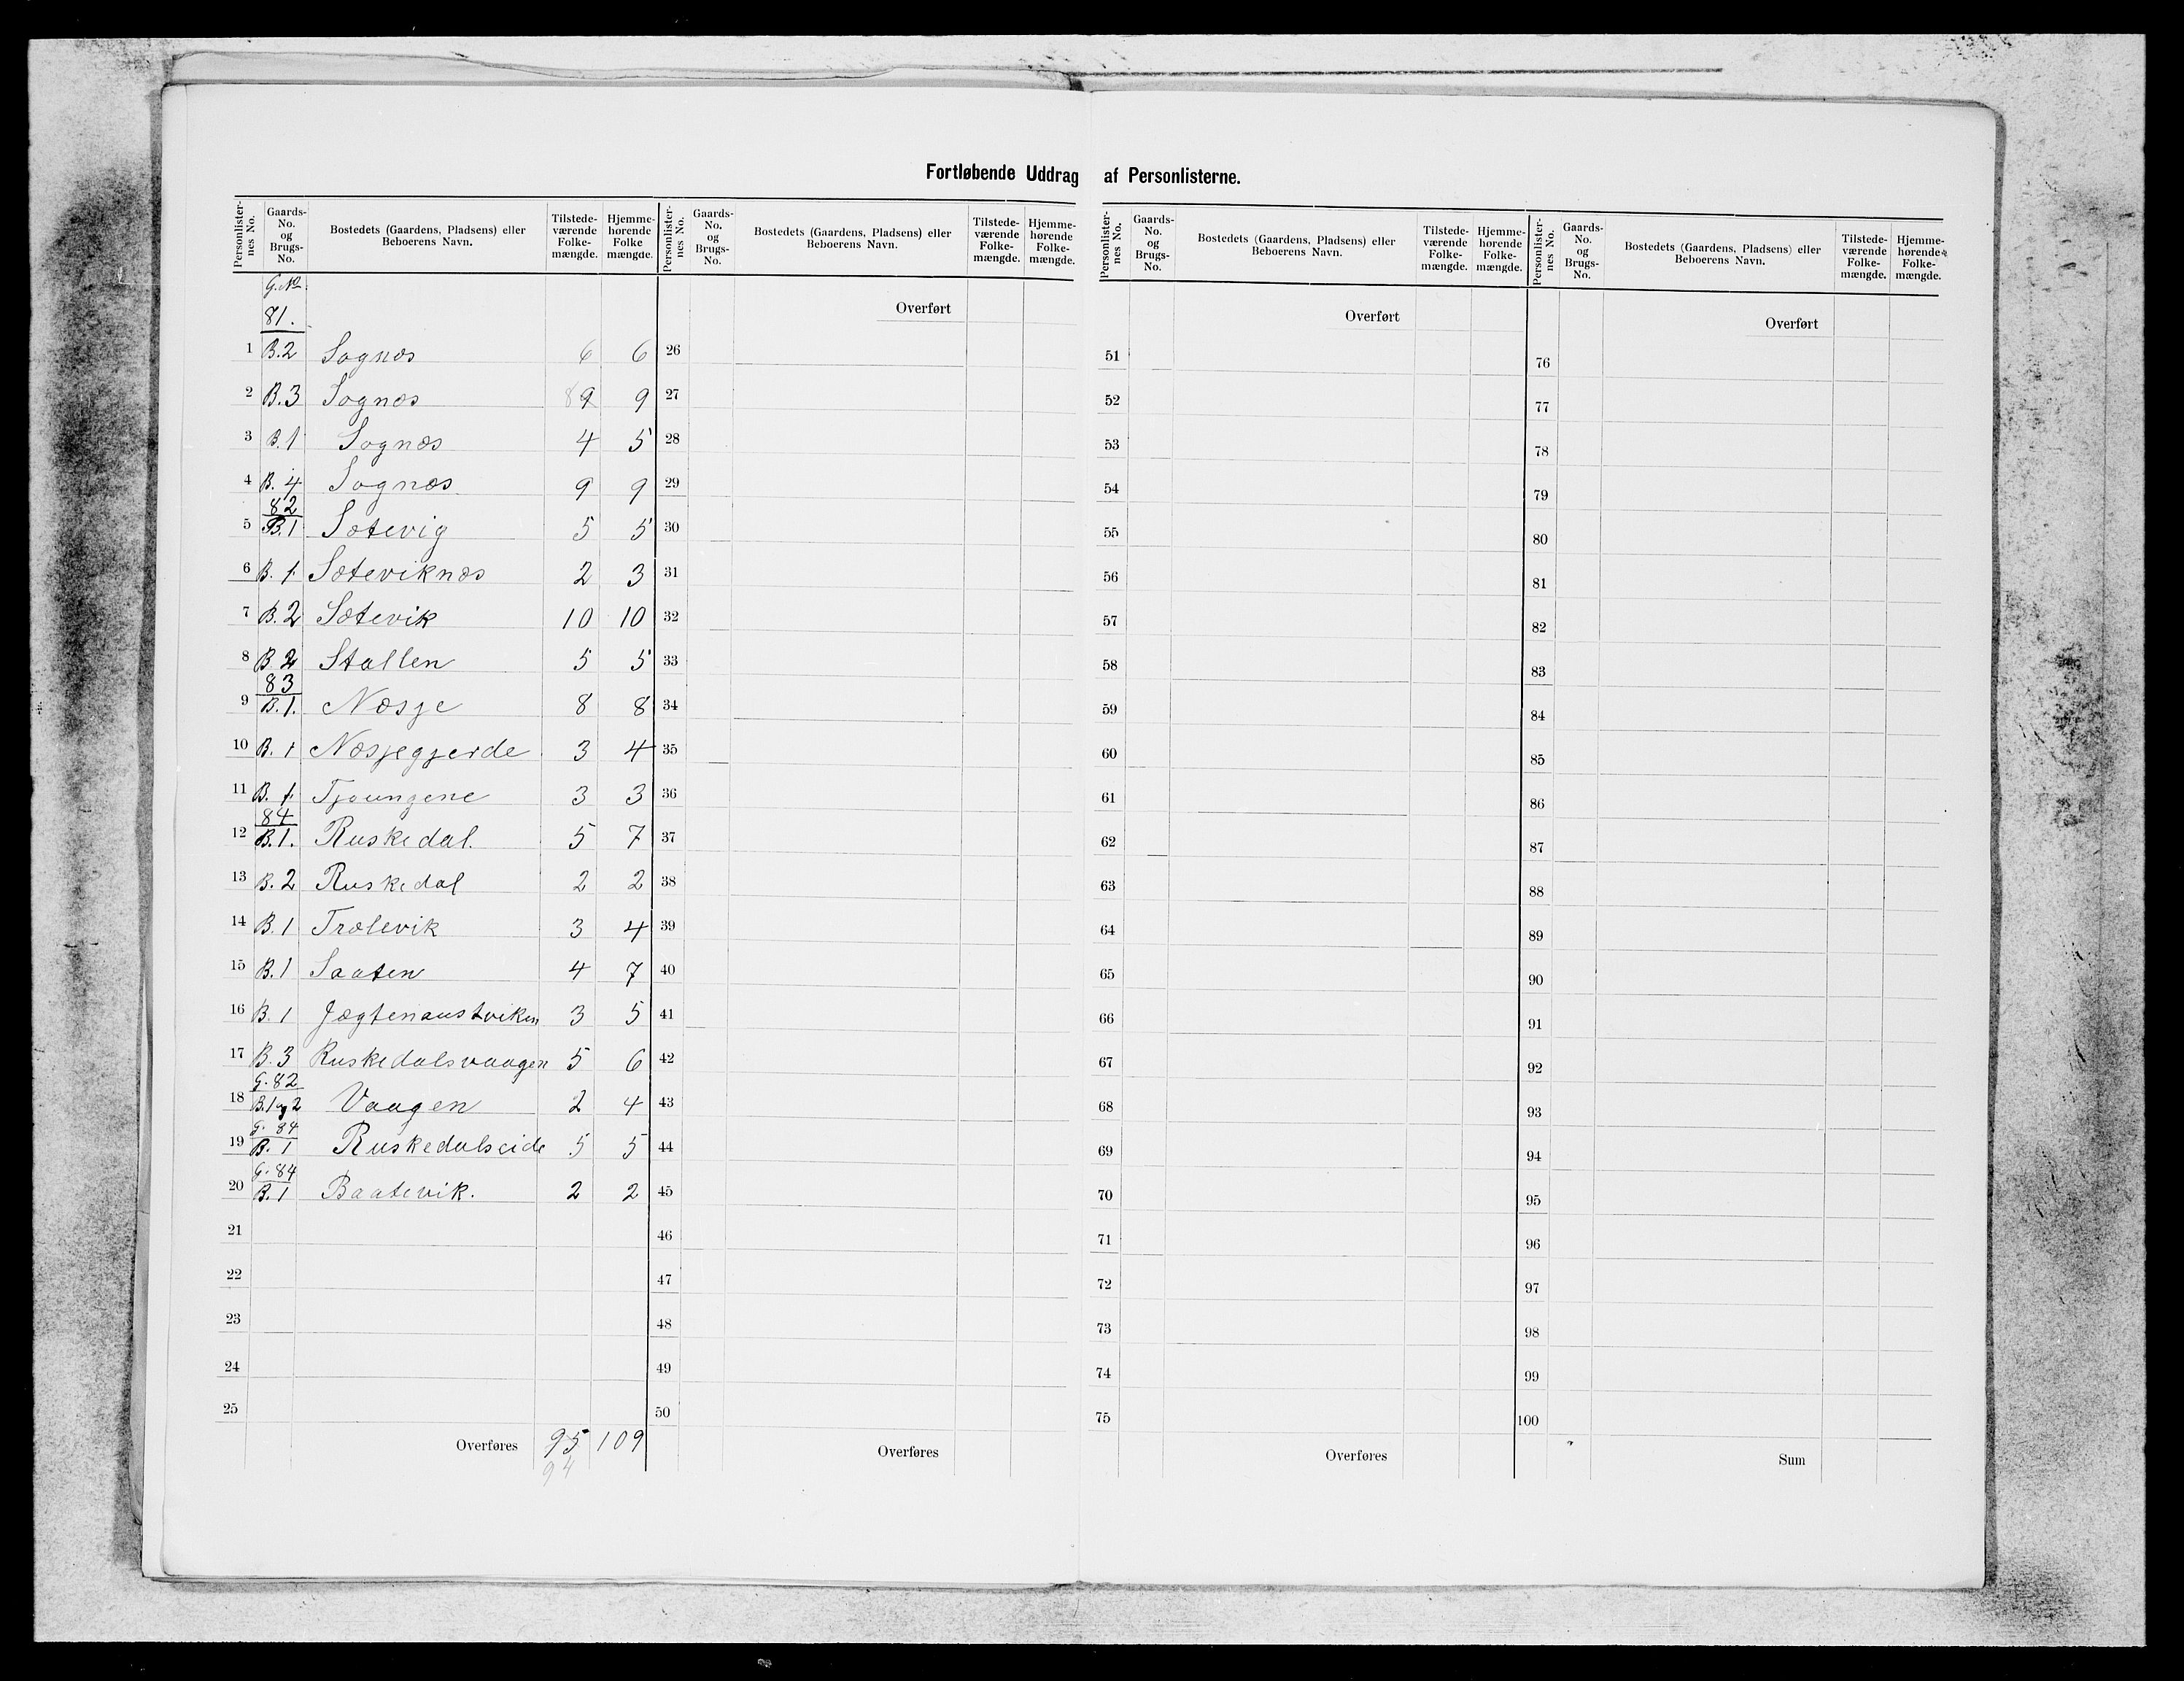 Fortløbende Uddrag af Personlisterne.
Personlister-nes No. | Gaards-No. og Brugs-No. | Bostedets (Gaardens, Pladsens) eller Beboerens Navn. | Tilstede-værende Folke-mængde. | Hjemme-hørende Folke mængde.
G.No
81.
1 B.2 Sognæs 6 6
2 B.3 Sognæs 89 9
3 B.1 Sognæs 4 5
4 B.4 Sognæs 9 9
82
5 B.1 Sætevig 5 5
6 B.1 Sæteviknæs 2 3
7 B.2 Sætevik 10 10
8 B.2 Stallen 5 5
83
9 B.1. Næsje 8 8
10 B.1 Næsjegjerde 3 4
11 B.1 Tjoungene 3 3
84
12 B.1. Ruskedal. 5 7
13 B.2 Ruskedal 2 2
14 B.1 Trælevik 3 4
15 B.1 Saaten 4 7
16 B.1 Jægtenaustviken 3 5
17 B.3 Ruskedalsvaagen 5 6
G.82
18 B.1og2 Vaagen 2 4
G.84
19 B.1 Ruskedalseide 5 5
G.84
20 B.1 Baatevik. 2 2
21
22
23
24
25
Overføres 95 109
94
Personlister-nes No. | Gaards-No. og Brugs-No. | Bostedets (Gaardens, Pladsens) eller Beboerens Navn. | Tilstede-værende Folke-mængde. | Hjemme-hørende Folke-mængde.
Overført
26
27
28
29
30
31
32
33
34
35
36
37
38
39
40
41
42
43
44
45
46
47
48
49
50
Overføres
Personlister-nes No. | Gaards-No. og Brugs-No. | Bostedets (Gaardens, Pladsens) eller Beboerens Navn. | Tilstede-værende Folke-mængde. | Hjemme-hørende Folke-mængde.
Overført
51
52
53
54
55
56
57
58
59
60
61
62
63
64
65
66
67
68
69
70
71
72
73
74
75
Overføres
Personlister-nes No. | Gaards-No. og Brugs-No. | Bostedets (Gaardens, Pladsens) eller Beboerens Navn. | Tilstede-værende Folke-mængde. | Hjemme-hørende Folke-mængde.
Overført
76
77
78
79
80
81
82
83
84
85
86
87
88
89
90
91
92
93
94
95
96
97
98
99
100
Sum